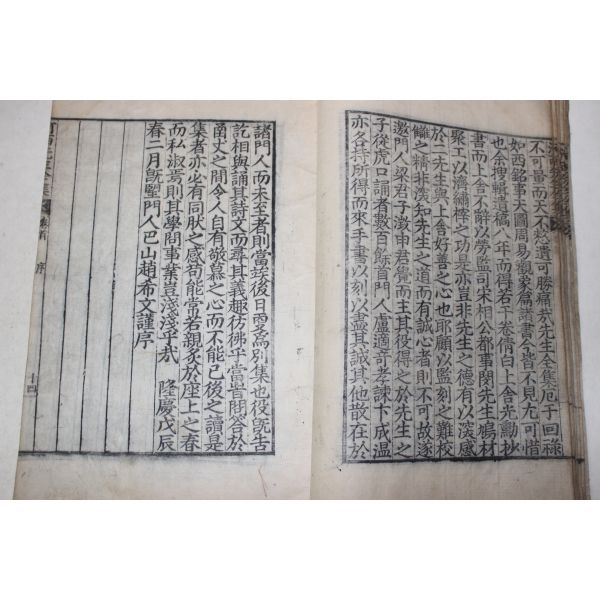 不可量而天不憖遺可勝痛哉先生全集厄于回祿
如西銘事天圖周易觀象篇諸書今皆不見尤可惜
也余搜輯遺稿八年而得若干卷倩白上舍光勳抄
書而上舍不辭以勞監司宋相公都事閔先生鳩材
聚工以濟繡梓之功是亦豈非先生之德有以深感
於二先生與上舍好善之心也耶顧以監刻之難校
讎之精非深知先生之道而有誠心者則不可故遂
邀門人梁君子澂申君覺而主其役得之於先生之
子從虎口誦者數百餘首門人盧適奇孝諫卞成温
亦各持所得而來手書以刻以盡其誠其他散在於
諸門人而未至者則當俟後日而爲別集也役旣告
訖相與誦其詩文而尋其義趣彷彿乎當昔問答於
函丈之間令人自有敬慕之心而不能已後之讀是
集者亦必有同肰之感苟能常若親炙於座上之春
而私淑焉則其學問事業豈淺淺乎哉 隆慶戊辰
春二月旣朢門人巴山趙希文謹序
序
十四